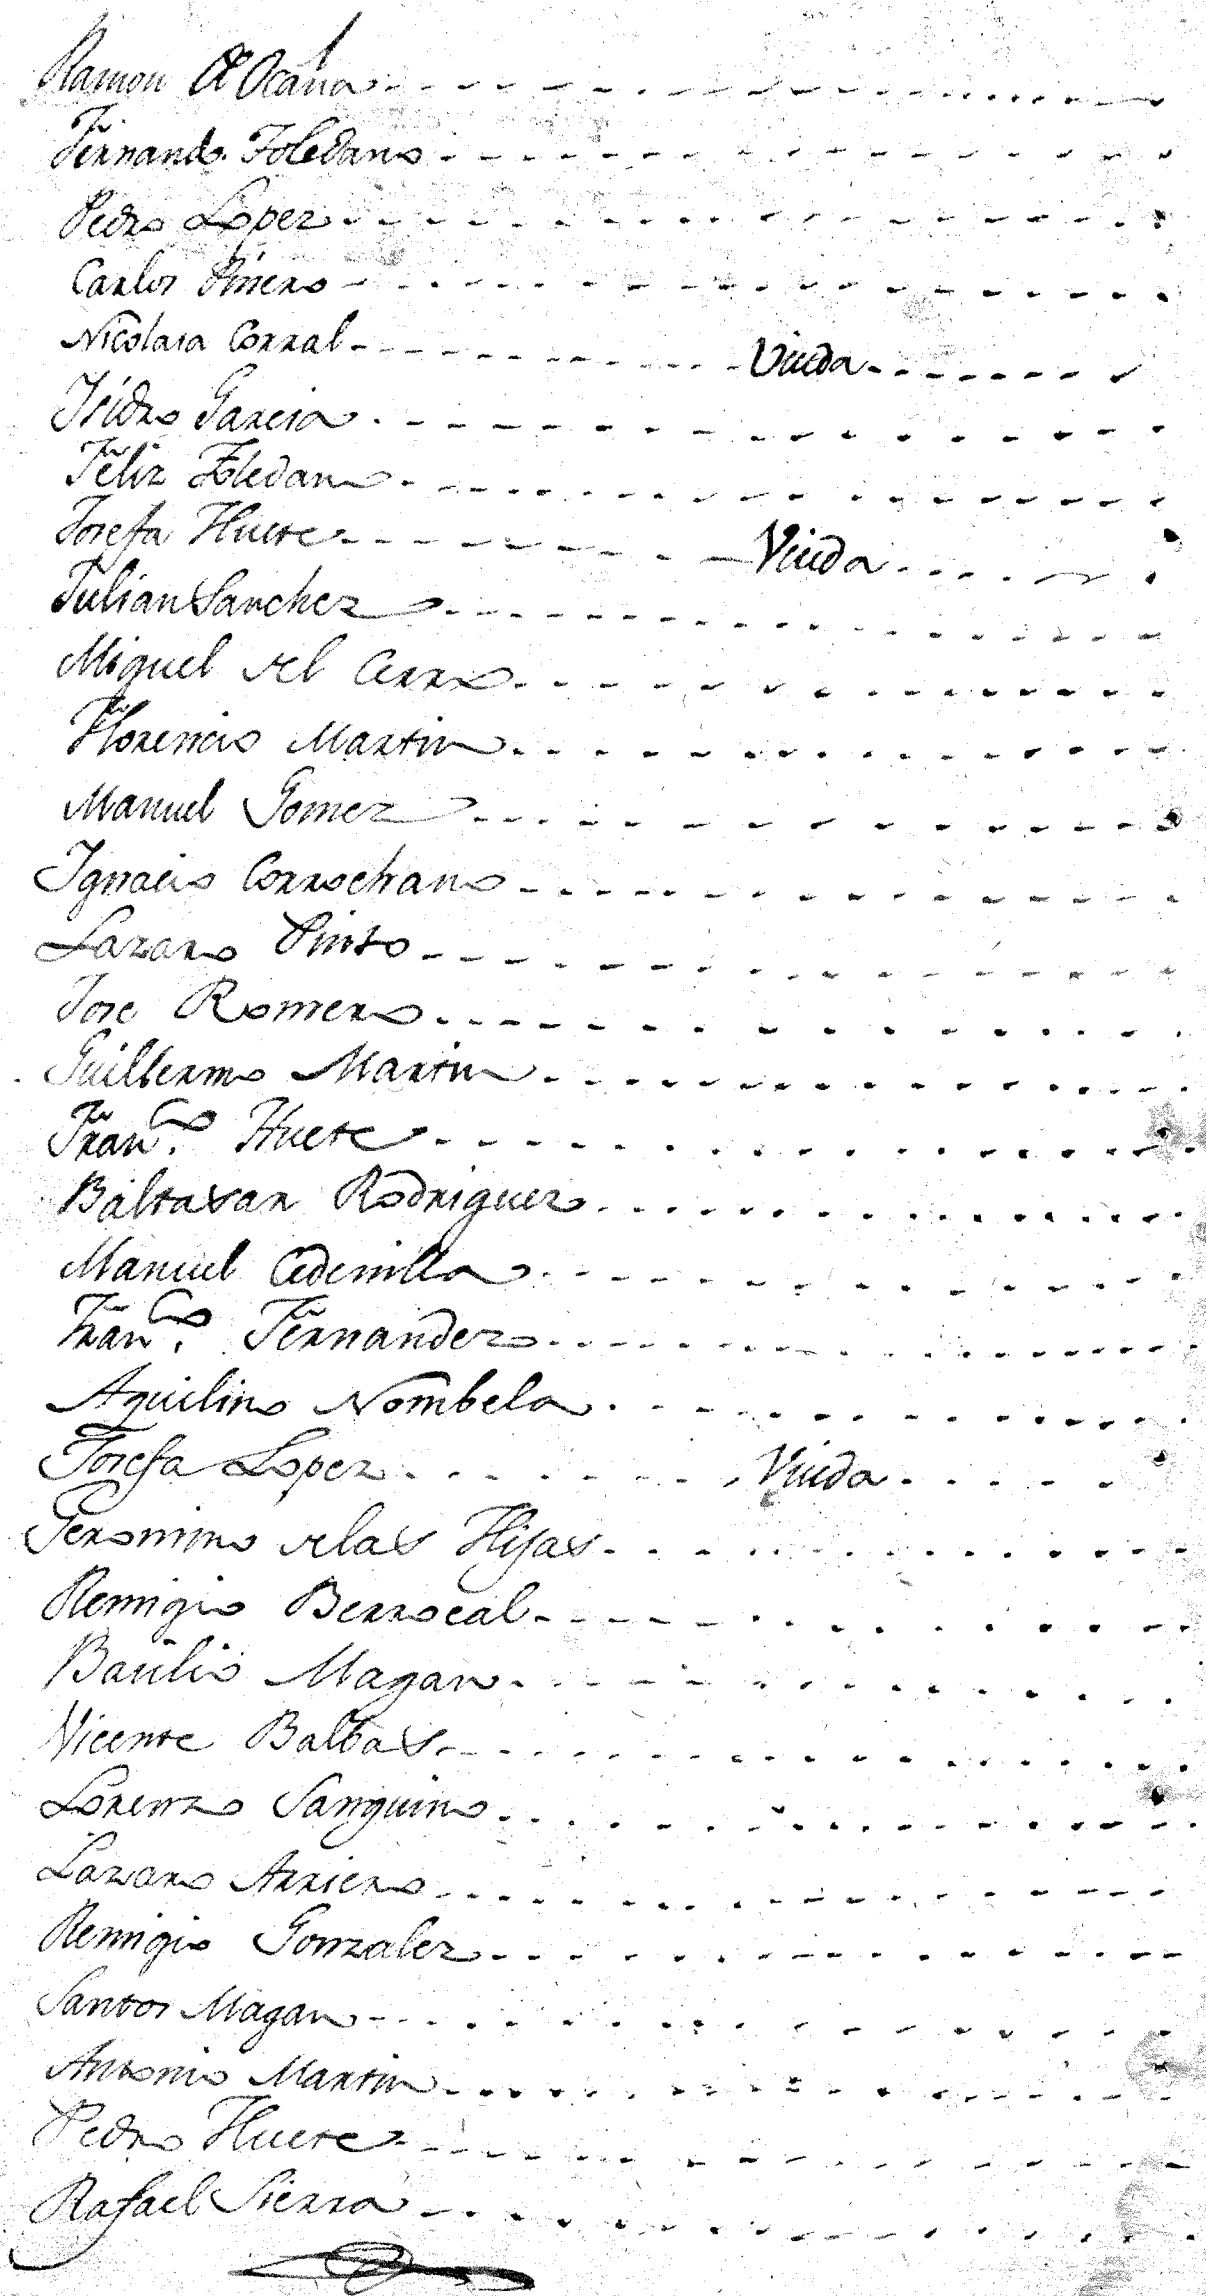 Ramon de Ocaña
Fernando Toledano
Pedro Lopez
Carlos Piñero
Nicolasa Corral Viuda
Isidro Garcia
Feliz Toledano
Josefa Huete Viuda
Julian Sanchez
Miguel del Cerro
Florencio Martin
Manuel Gomez
Ignacio Corrochano
Lazaro Pinto
Jose Romero
Guillermo Martin
Fran.co Huete
Baltasar Rodriguez
Manuel Cedenilla
Fran.co Fernandez
Aquilino Nombela
Josefa Lopez Viuda
Geronimo delas Hijas
Remigio Berrocal
Basilio Magan
Vicente Balbas
Lorenzo Sanguino
Lazaro Arriero
Remigio Gonzalez
Santos Magan
Antonio Martin
Pedro Huete
Rafael Sierra